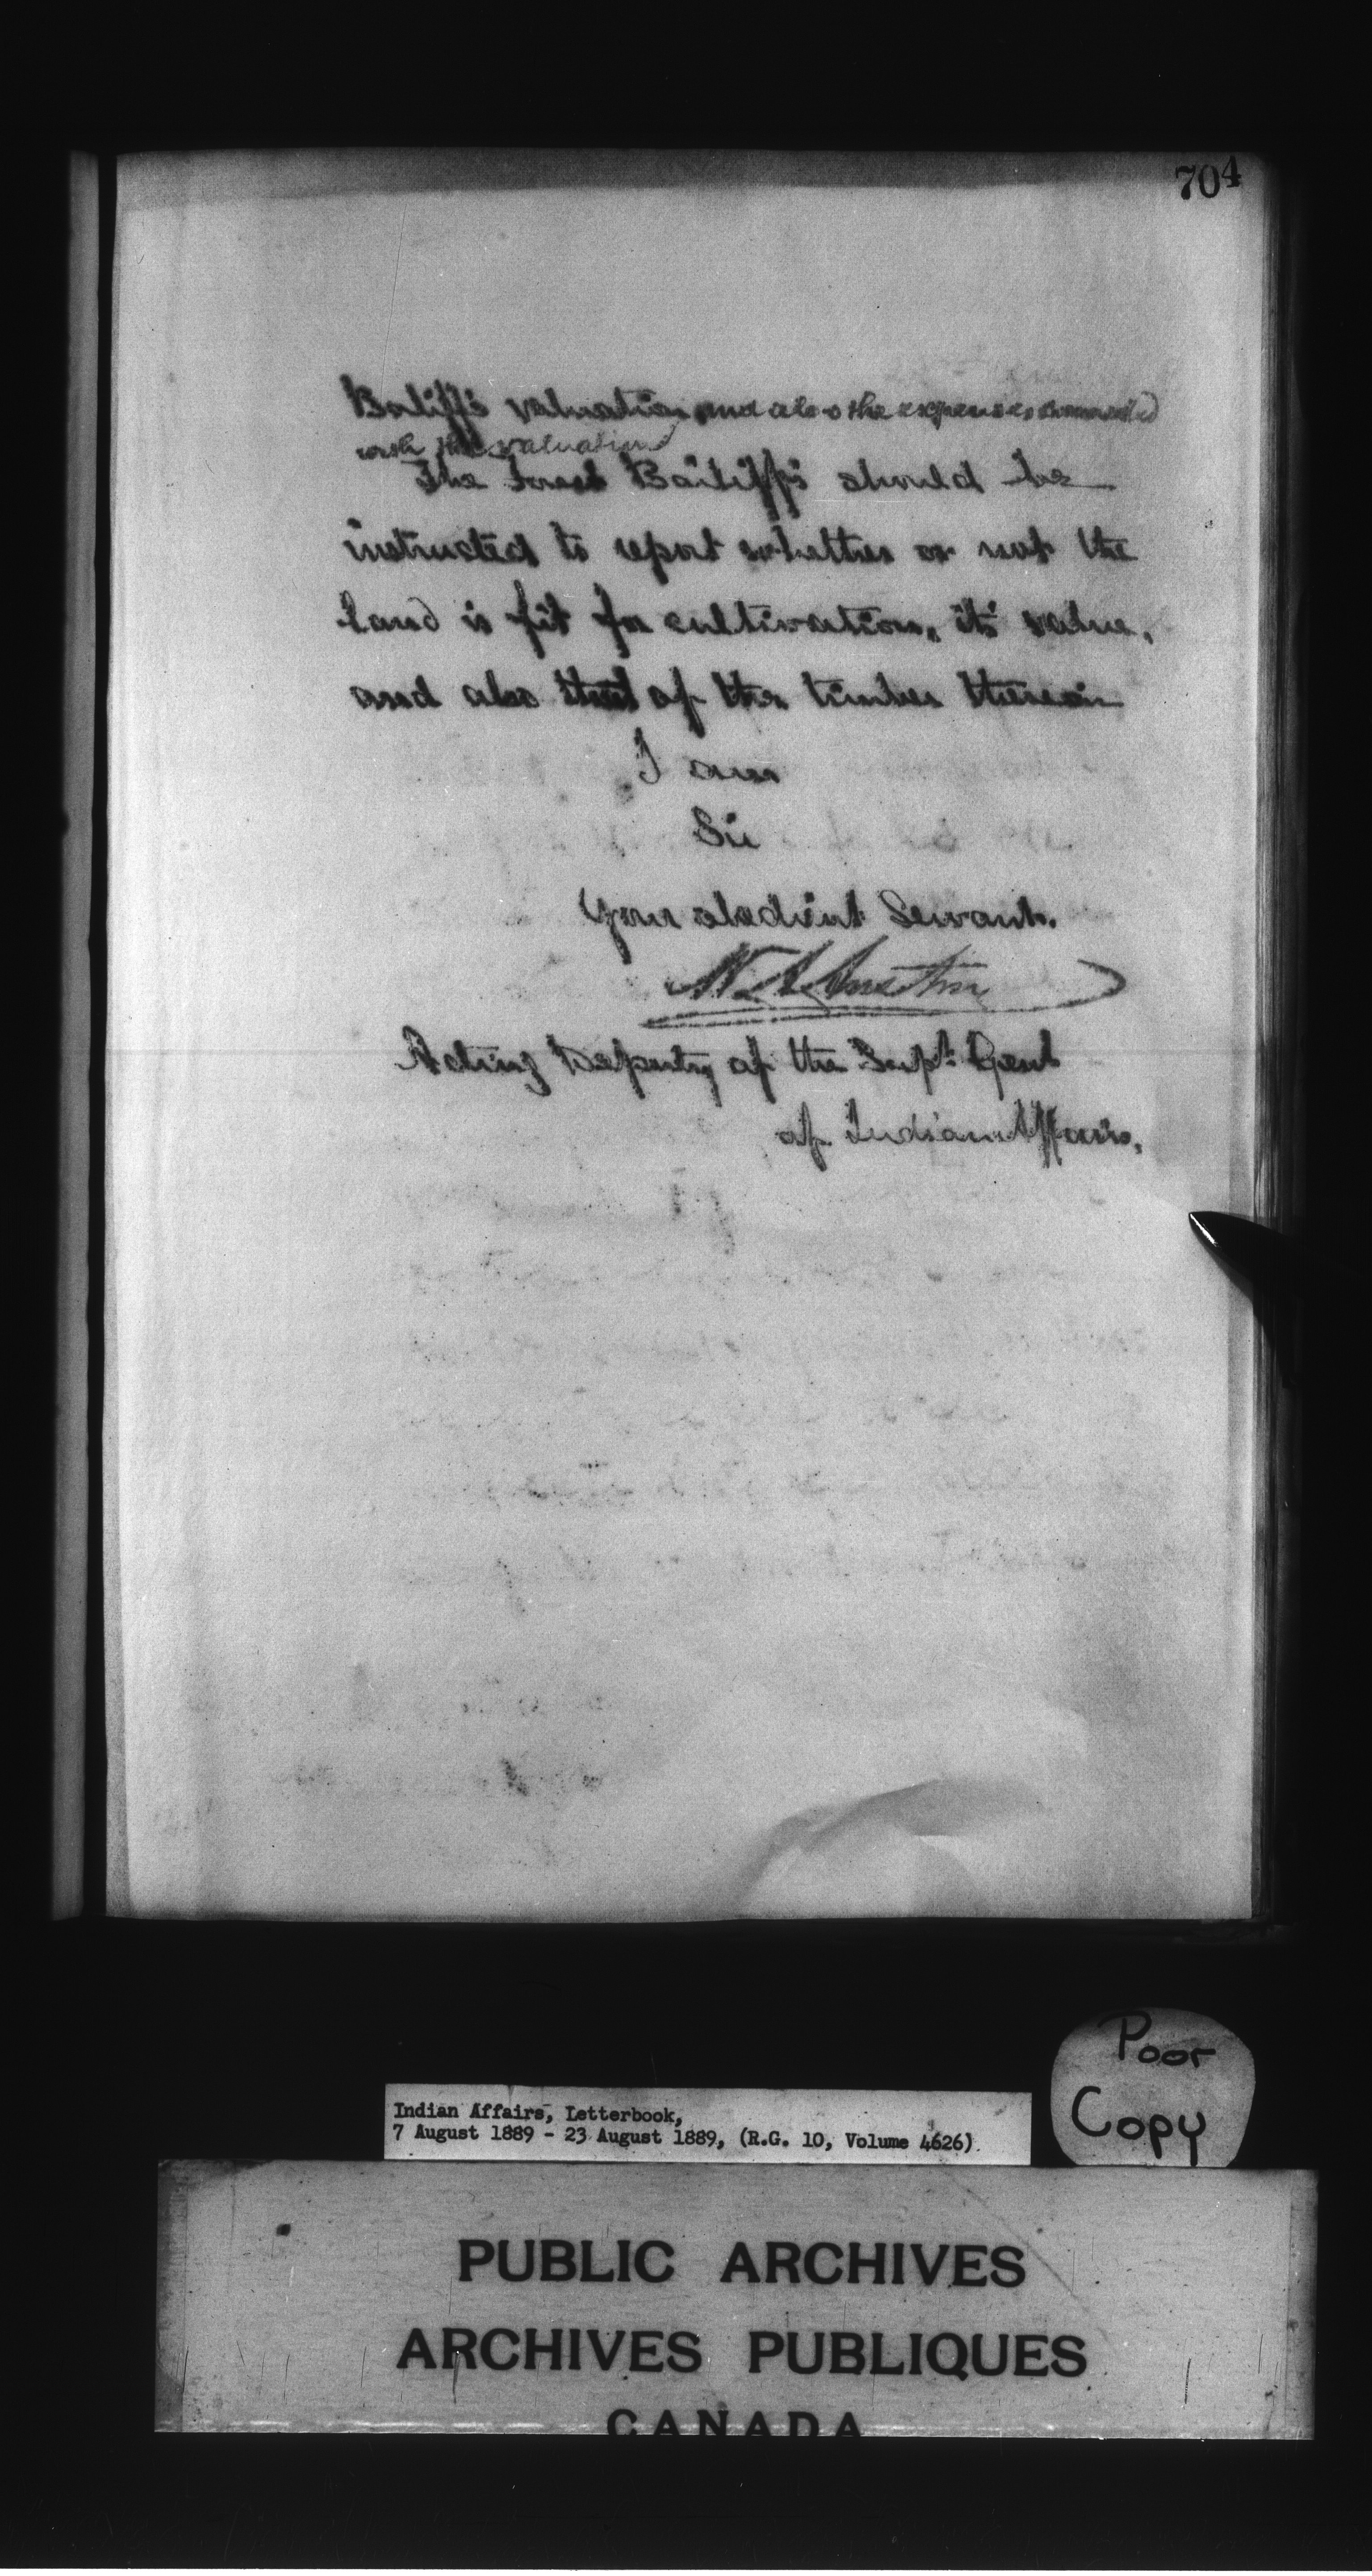 704
Bailiff's valuation and also the expenses connected
with the valuation
The Forest Bailiff's should be
instructed to report whether or not the
land is fit for cultivation, its value,
and also that of the timber thereon
I am
Sir
Your obedient Servant.
Acting Deputy of the Supt. Genl
of Indian Affairs.
Poor
Copy
Indian Affairs, Letterbook,
7 August 1889 - 23 August 1889, (R.G. 10, Volume 4626).
PUBLIC ARCHIVES
ARCHIVES PUBLIQUES
CANADA